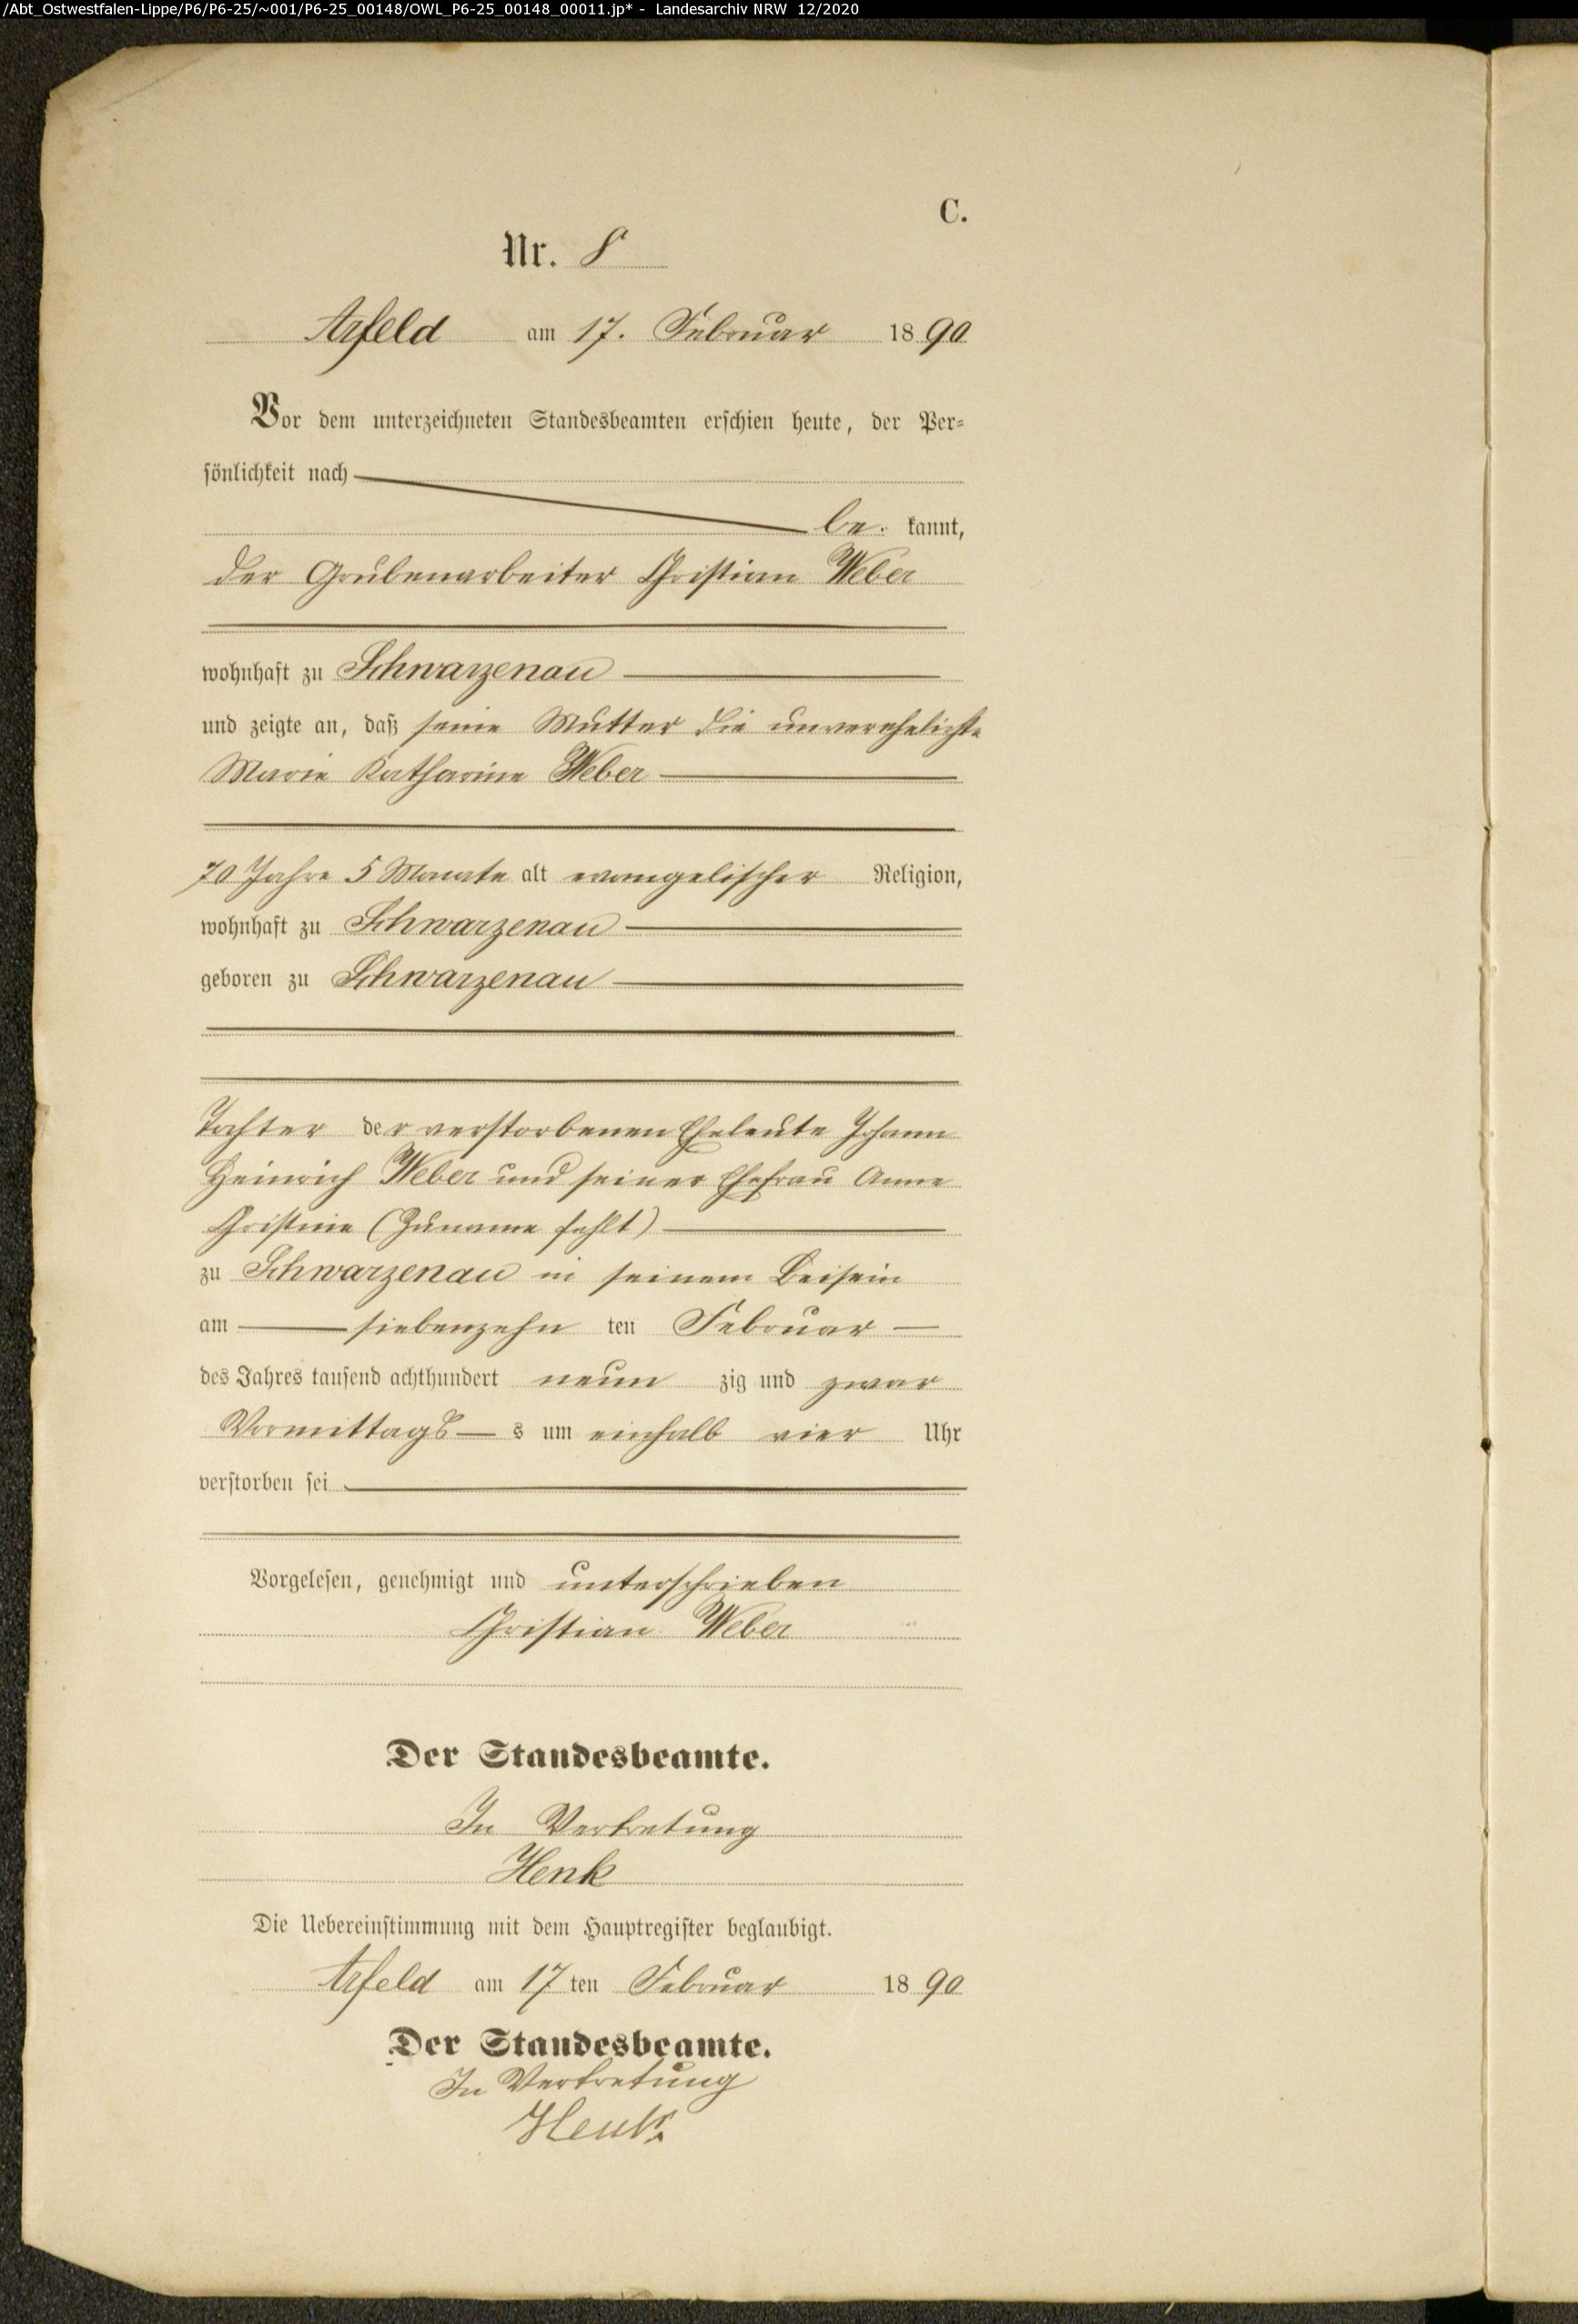 /Abt_Ostwestfalen-Lippe/P6/P6-25/~001/P6-25_00148/OWL_P6-25_00148_00011.jp* - Landesarchiv NRW 12/2020
C.
Nr. 8
Arfeld am 17. Februar 1890
Vor dem unterzeichneten Standesbeamten erschien heute, der Per-
sönlichkeit nach
be. kannt,
der Grubenarbeiter Christian Weber
wohnhaft zu Schwarzenau
und zeigte an, daß seine Mutter die unverehelichte
Marie Katharine Weber
70 Jahre 5 Monate alt evangelischer Religion,
wohnhaft zu Schwarzenau
geboren zu Schwarzenau
Tochter der verstorbenen Eheleute Johann
Heinrich Weber und seiner Ehefrau Anne
Christine (Zuname fehlt)
zu Schwarzenau in seinem Beisein
am siebenzehn ten Februar
des Jahres tausend achthundert neun zig und zwar
Vormittags s um einhalb vier Uhr
verstorben sei
Vorgelesen, genehmigt und unterschrieben
Christian Weber
Der Standesbeamte.
In Vertretung
Henk
Die Uebereinstimmung mit dem Hauptregister beglaubigt.
Arfeld am 17 ten Februar 1890
Der Standesbeamte.
In Vertretung
Henk.